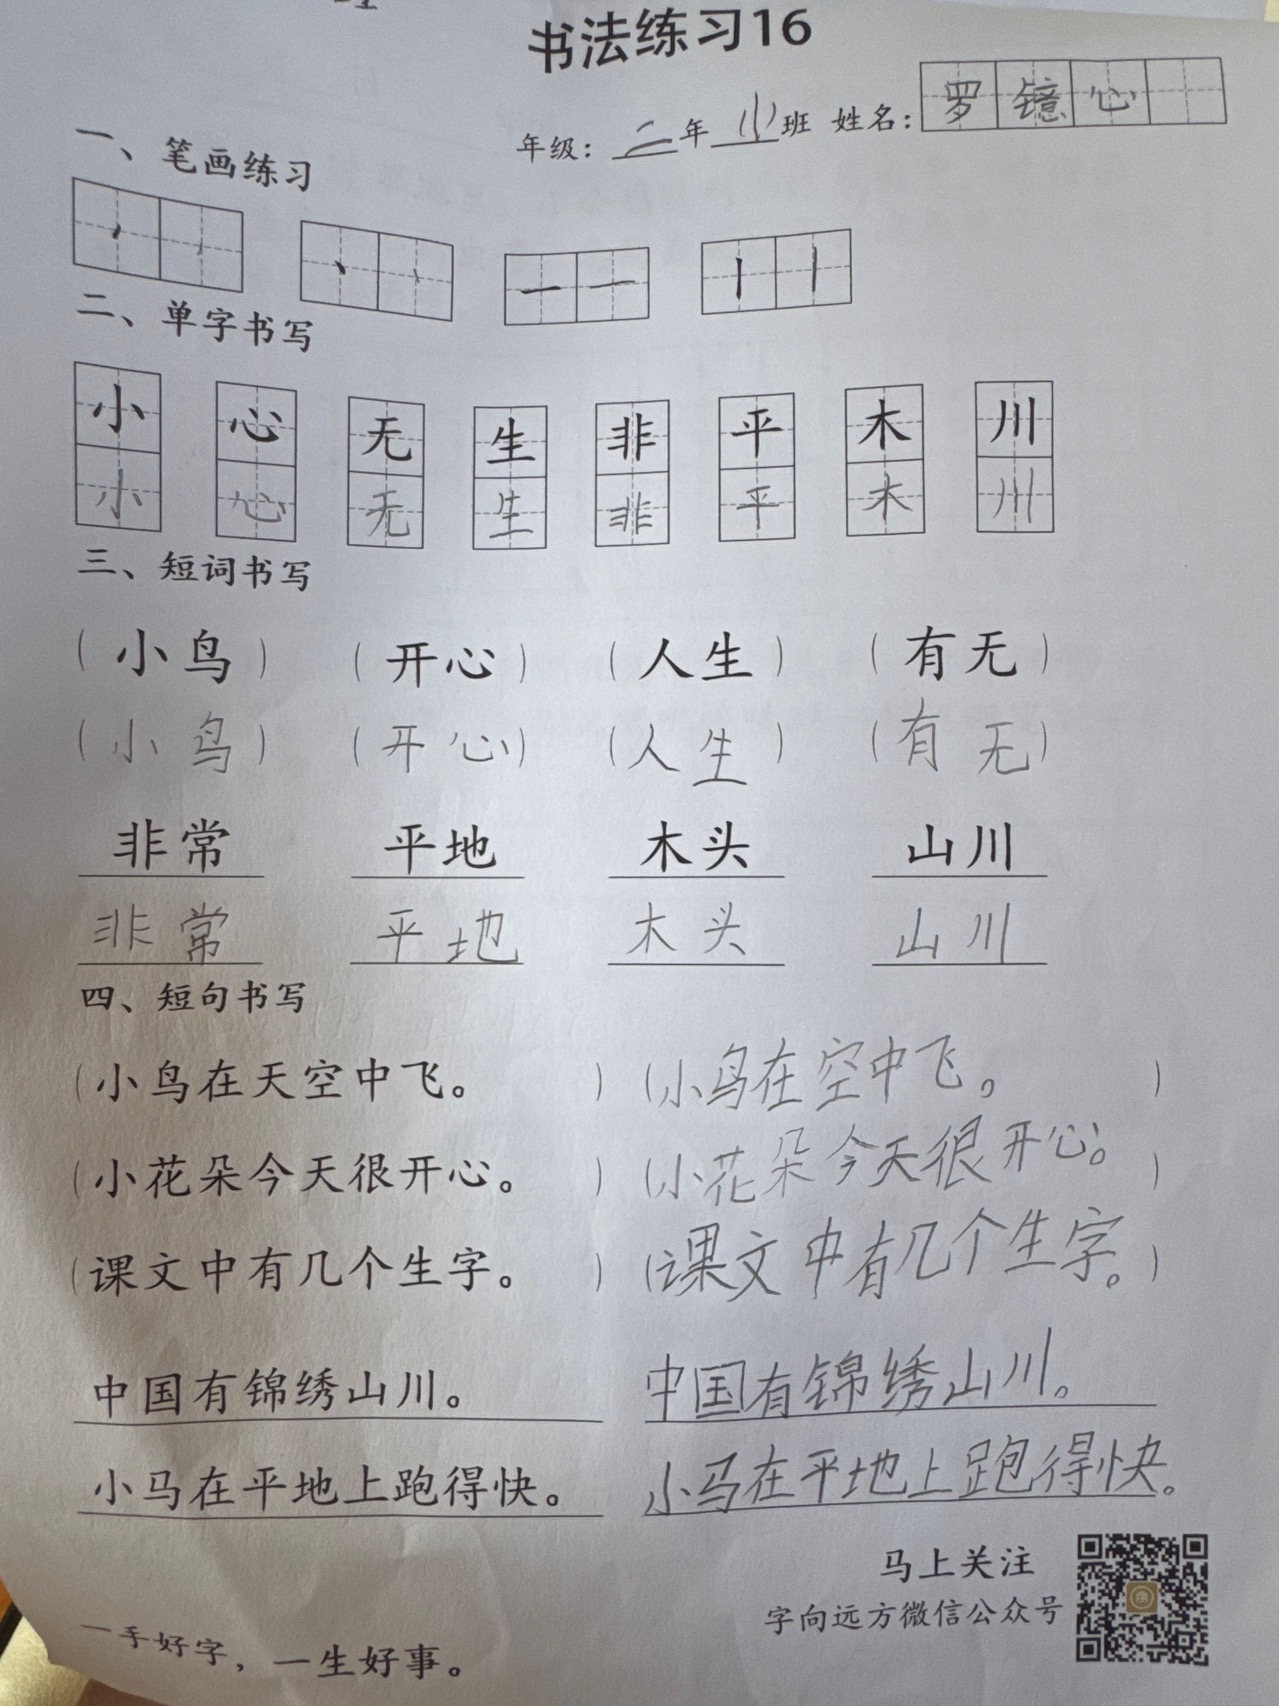 书法练习16
年级：二年小班 姓名：罗镱心
一、笔画练习
二、单字书写
小 心 无 生 非 平 木 川
小 心 无 生 非 平 木 川
三、短词书写
（小鸟） （开心） （人生） （有无）
（小鸟） （开心） （人生） （有无）
非常 平地 木头 山川
非常 平地 木头 山川
四、短句书写
（小鸟在天空中飞。） （小鸟在空中飞。）
（小花朵今天很开心。） （小花朵今天很开心。）
（课文中有几个生字。） （课文中有几个生字。）
中国有锦绣山川。 中国有锦绣山川。
小马在平地上跑得快。 小马在平地上跑得快。
马上关注
字向远方微信公众号
一手好字，一生好事。